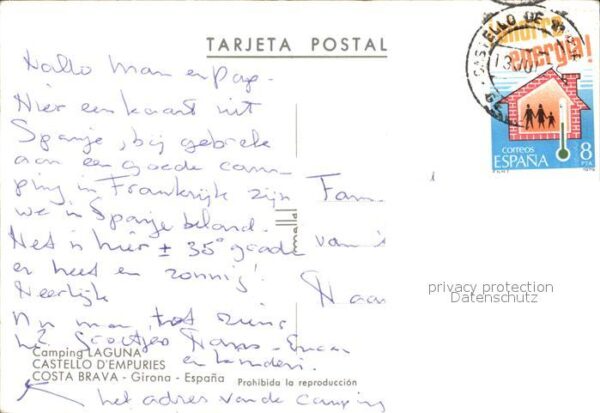 TARJETA POSTAL
CASTELLO DE
ahorre
energía!
correos
ESPAÑA 8 PTA
Hallo Mam en Pap.
Hier een kaart uit
Spanje, bij gebrek
aan een goede cam-
ping in Frankrijk zijn
we in Spanje beland.
Het is hier ± 35° graden
er heet en zonnig!
Heerlijk
Nu mam, tot ziens
en kinderen.
Fam.
van
Haar
privacy protection
Datenschutz
Camping LAGUNA
CASTELLO D'EMPURIES
COSTA BRAVA - Girona - España
Prohibida la reproducción
het adres van de camping